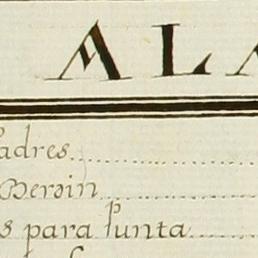 ALA
adres
Bersin
s para Punta